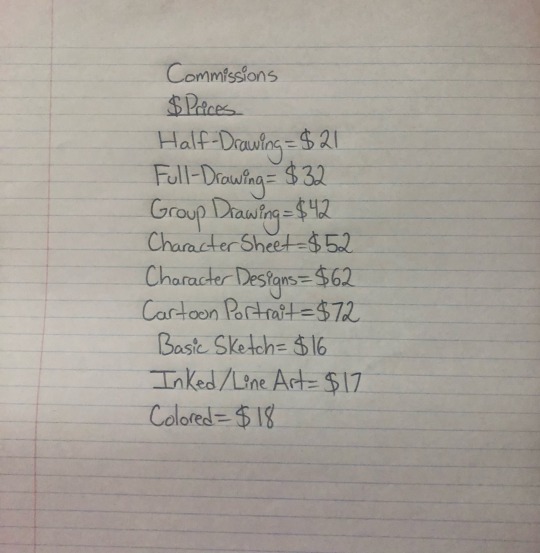 Commissions
$Prices
Half-Drawing=$21
Full-Drawing=$32
Group Drawing=$42
Character Sheet=$52
Character Designs=$62
Cartoon Portrait=$72
Basic Sketch=$16
Inked/Line Art=$17
Colored=$18